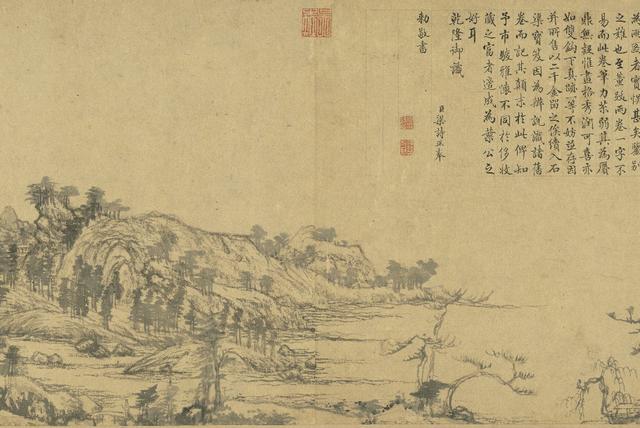 甚矣鑒別
之難也至董跋兩卷一字不
易而此卷筆力苶弱其為贋
鼎無疑惟畫格秀潤可喜亦
如雙鈎下真蹟一等不妨並存因
並所售以二千金留之俟續入石
渠寶笈因為辨說識諸舊
卷而記其顛末於此俾知
予市駿雅懷不同於侈收
藏之富者適成為葉公之
好耳
乾隆御識
臣梁詩正奉
勅敬書